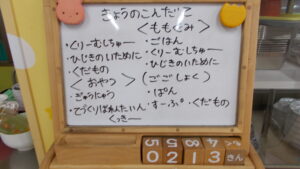 きょうのこんだて
＜ももぐみ＞
・くりーむしちゅー
・ひじきのいために
・くだもの
＜おやつ＞
・ぎゅうにゅう
・ごはん
・くりーむしちゅー
・ひじきのいために
（ごごしょく）
・ぱん
・すーぷ ・くだもの
くっきー
0213
きん